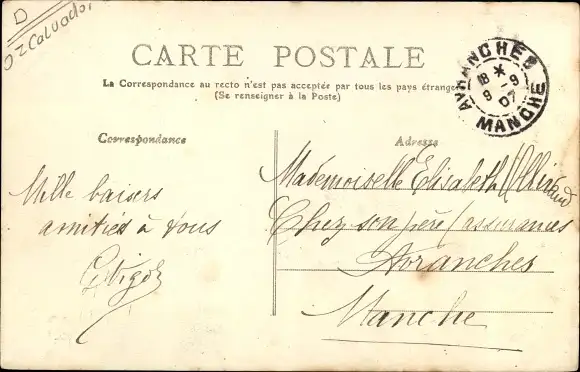 D
OZ Calvados
CARTE POSTALE
La Correspondance au recto n'est pas acceptée par tous les pays étrange
(Se renseigner à la Poste)
AVRANCHES
18 *
9 -9
07
MANCHE
Correspondance
Adresse
Mille baisers
amitiés à vous
Mademoiselle Elisabeth
Chez son père / assurances
Avranches
Manche